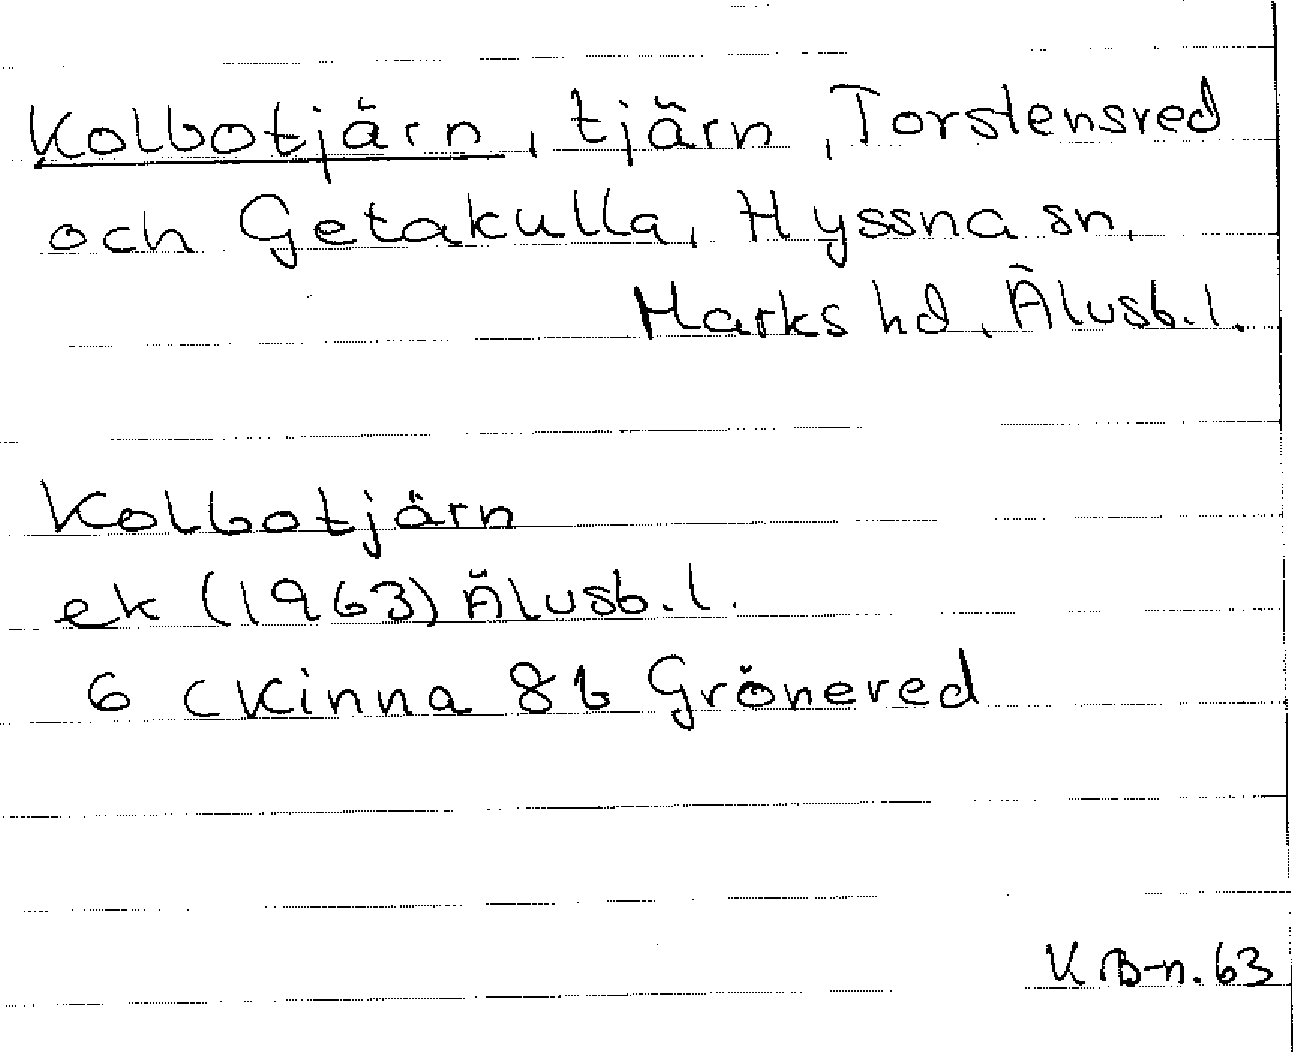 Kolbotjärn, tjärn, Torstensred
och Getakulla, Hyssna sn,
Marks hd, Älvsb.l.
Kolbotjärn
ek (1963) Älvsb.l.
6 C Kinna 8b Grönered
K B-n. 63